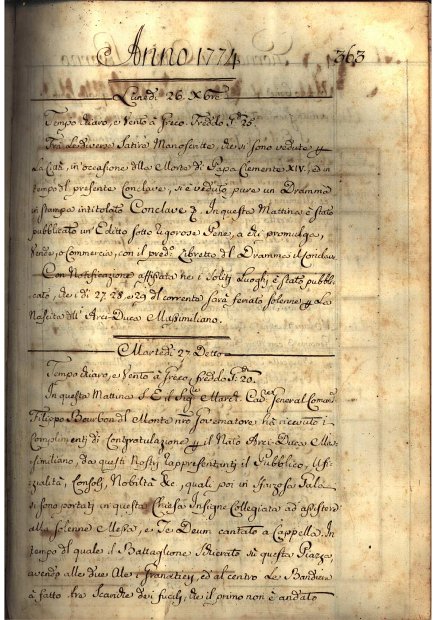 Anno 1774 363
Lunedì 26. Xbre
Tempo chiaro, e Vento à Greco. Freddo gdi 25.
Frà le diverse Satire Manoscritte, che si sono vedute p
La Città, in occasione della Morte di Papa Clemente XIV, ed in
tempo del presente Conclave, si è veduto pure un Dramma
in stampa intitolato Conclave &. In questa Mattina è stato
pubblicato un Editto sotto rigorose Pene, a chi promulga,
Vende, o Commercia, con il predo Libretto del Dramma il Conclave
Con Notificazione affissata ne i soliti Luoghi è stato pubbli-
cato, che i dì 27. 28. e 29 del corrente sarà feriato solenne p la
Nascita dell' Arci-Duca Massimiliano.
Martedì 27. Detto
Tempo chiaro, e Vento à Greco, freddo gdi 20.
In questa Mattina S. E. il Sigre March. Cavre General Comande
Filippo Bourbon del Monte nro Governatore, hà ricevuto i
Complimenti di Congratulazione p il Nato Arci-Duca Mas-
similiano, da questi Rappresentanti il Pubblico, Ufi-
zialità, Consoli, Nobiltà &c, quali poi in
si sono portati in questa Chiesa Insigne Collegiata ad assistere
alla solenne Messa, e Te Deum cantato a Cappella. In
tempo del quale il Battaglione Schierato sù questa Piazza,
avendo alle due Ale i Granatieri, ed al centro le Bandiere
à fatto tre Scariche dei fucili, che il primo non è andato